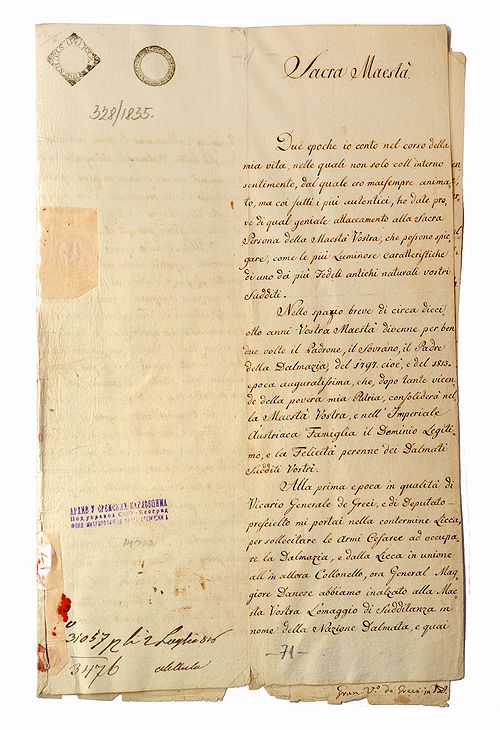 328/1835.
Sacra Maestà.
Due epoche io conto nel corso della
mia vita, nelle quali non solo coll'interno
sentimento, dal quale ero maisempre anima-
to, ma coi fatti i più autentici, ho date pro-
ve di qual geniale attaccamento alla Sacra
Persona della Maestà Vostra, che possono spie-
gare, come le più luminose caratteristiche
di uno dei più Fedeli antichi naturali vostri
Sudditi.
Nello spazio breve di circa dieci
otto anni Vostra Maestà divenne per ben
due volte il Padrone, il Sovrano, il Padre
della Dalmazia, del 1797. cioè, e del 1813.
epoca auguratissima, che, dopo tante vicen-
de della povera mia Patria, consoliderò nel-
la Maestà Vostra, e nell'Imperiale
Austriaca Famiglia il Dominio Legiti-
mo, e la Felicità perenne dei Dalmati
Sudditi Vostri.
Alla prima epoca in qualità di
Vicario Generale de Greci, e di Deputato
prescielto mi portai nella contermine Licca,
per sollecitare le Armi Cesaree ad occupa-
re la Dalmazia, e dalla Licca in unione
all'in allora Collonello, ora General Mag-
giore Danese abbiamo inalzato alla Mae-
stà Vostra l'omaggio di Sudditanza in
nome della Nazione Dalmata, e quai
АРХИВ У СРЕМСКИМ КАРЛОВЦИМА
-71-
3476